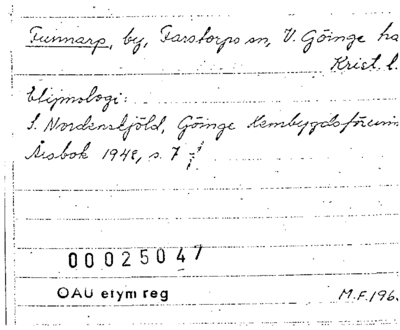 Funnarp, by, Farstorps sn, V. Göinge ha
Krist. l.
Etijmologi:
S. Nordenskjöld, Göinge Hembygdsförenin
Årsbok 1948, s. 7
00025047
OAU etym reg
M.F. 196